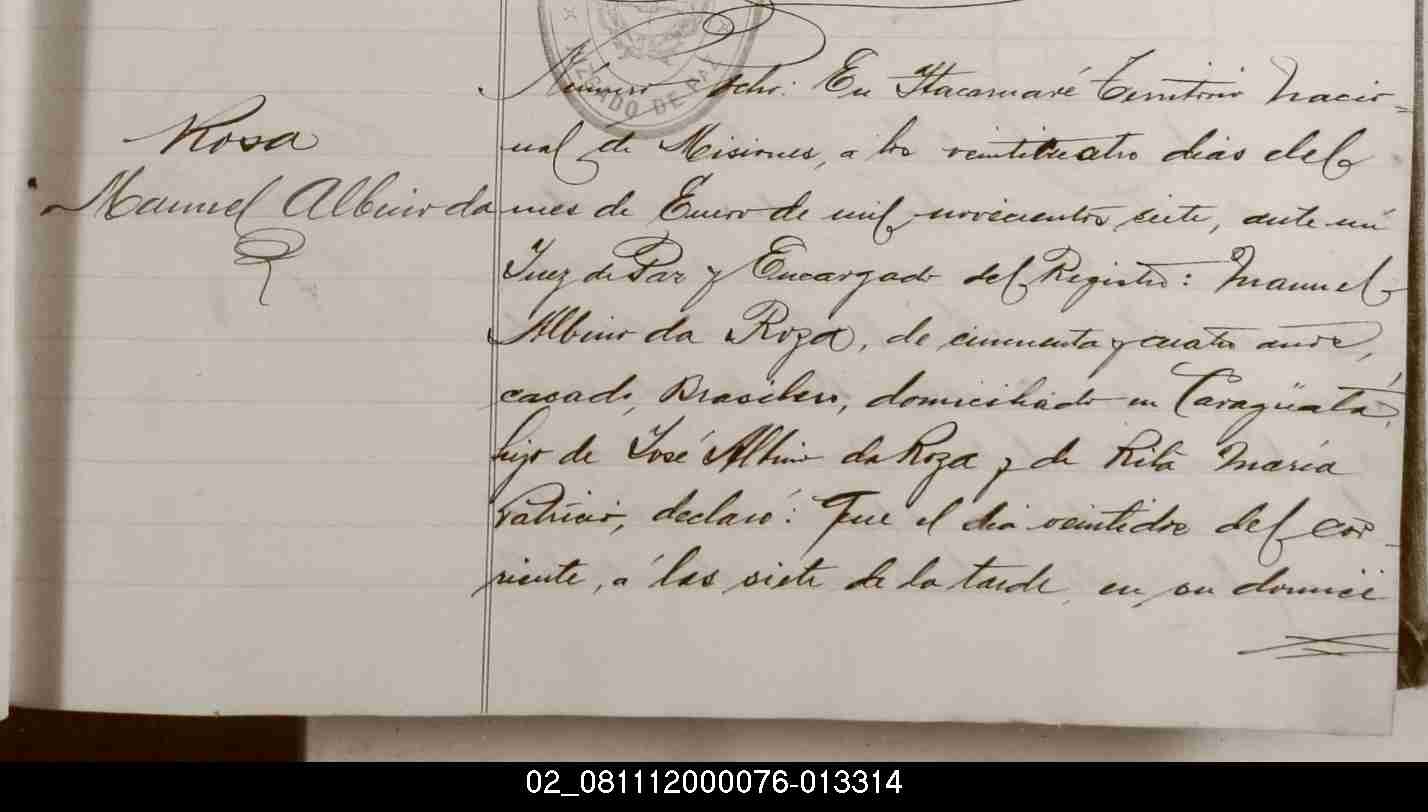 JUZGADO DE PAZ
Número ocho: En Itacaruaré Territorio Nacio-
nal de Misiones, a los veinticuatro dias del
mes de Enero de mil novecientos siete, ante mí
Juez de Paz y Encargado del Registro: Manuel
Albino da Roza, de cincuenta y cuatro años,
casado, Brasilero, domiciliado en Caraguatá,
hijo de José Albino da Roza y de Rita María
Patricio, declaró: Que el dia veintidos del cor-
riente, á las siete de la tarde, en su domici
Rosa
Manuel Albino da
02_081112000076-013314